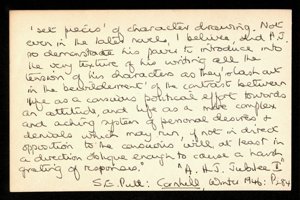 'set pieces' of character drawing. Not
even in the later novels, I believe, did H.J.
so demonstrate his power to introduce into
the very texture of his writing all the
tension of his characters as they 'slash out
in the bewilderment' of the contrast between
life as a conscious political effort towards
an attitude, and life as a more complex
and aching system of personal desires &
denials which may run, if not in direct
opposition to the conscious will, at least in
a direction oblique enough to cause a harsh
grating of responses."
"A H.J. Jubilee I"
S.G. Putt: Cornhill, Winter 1946: P. 284